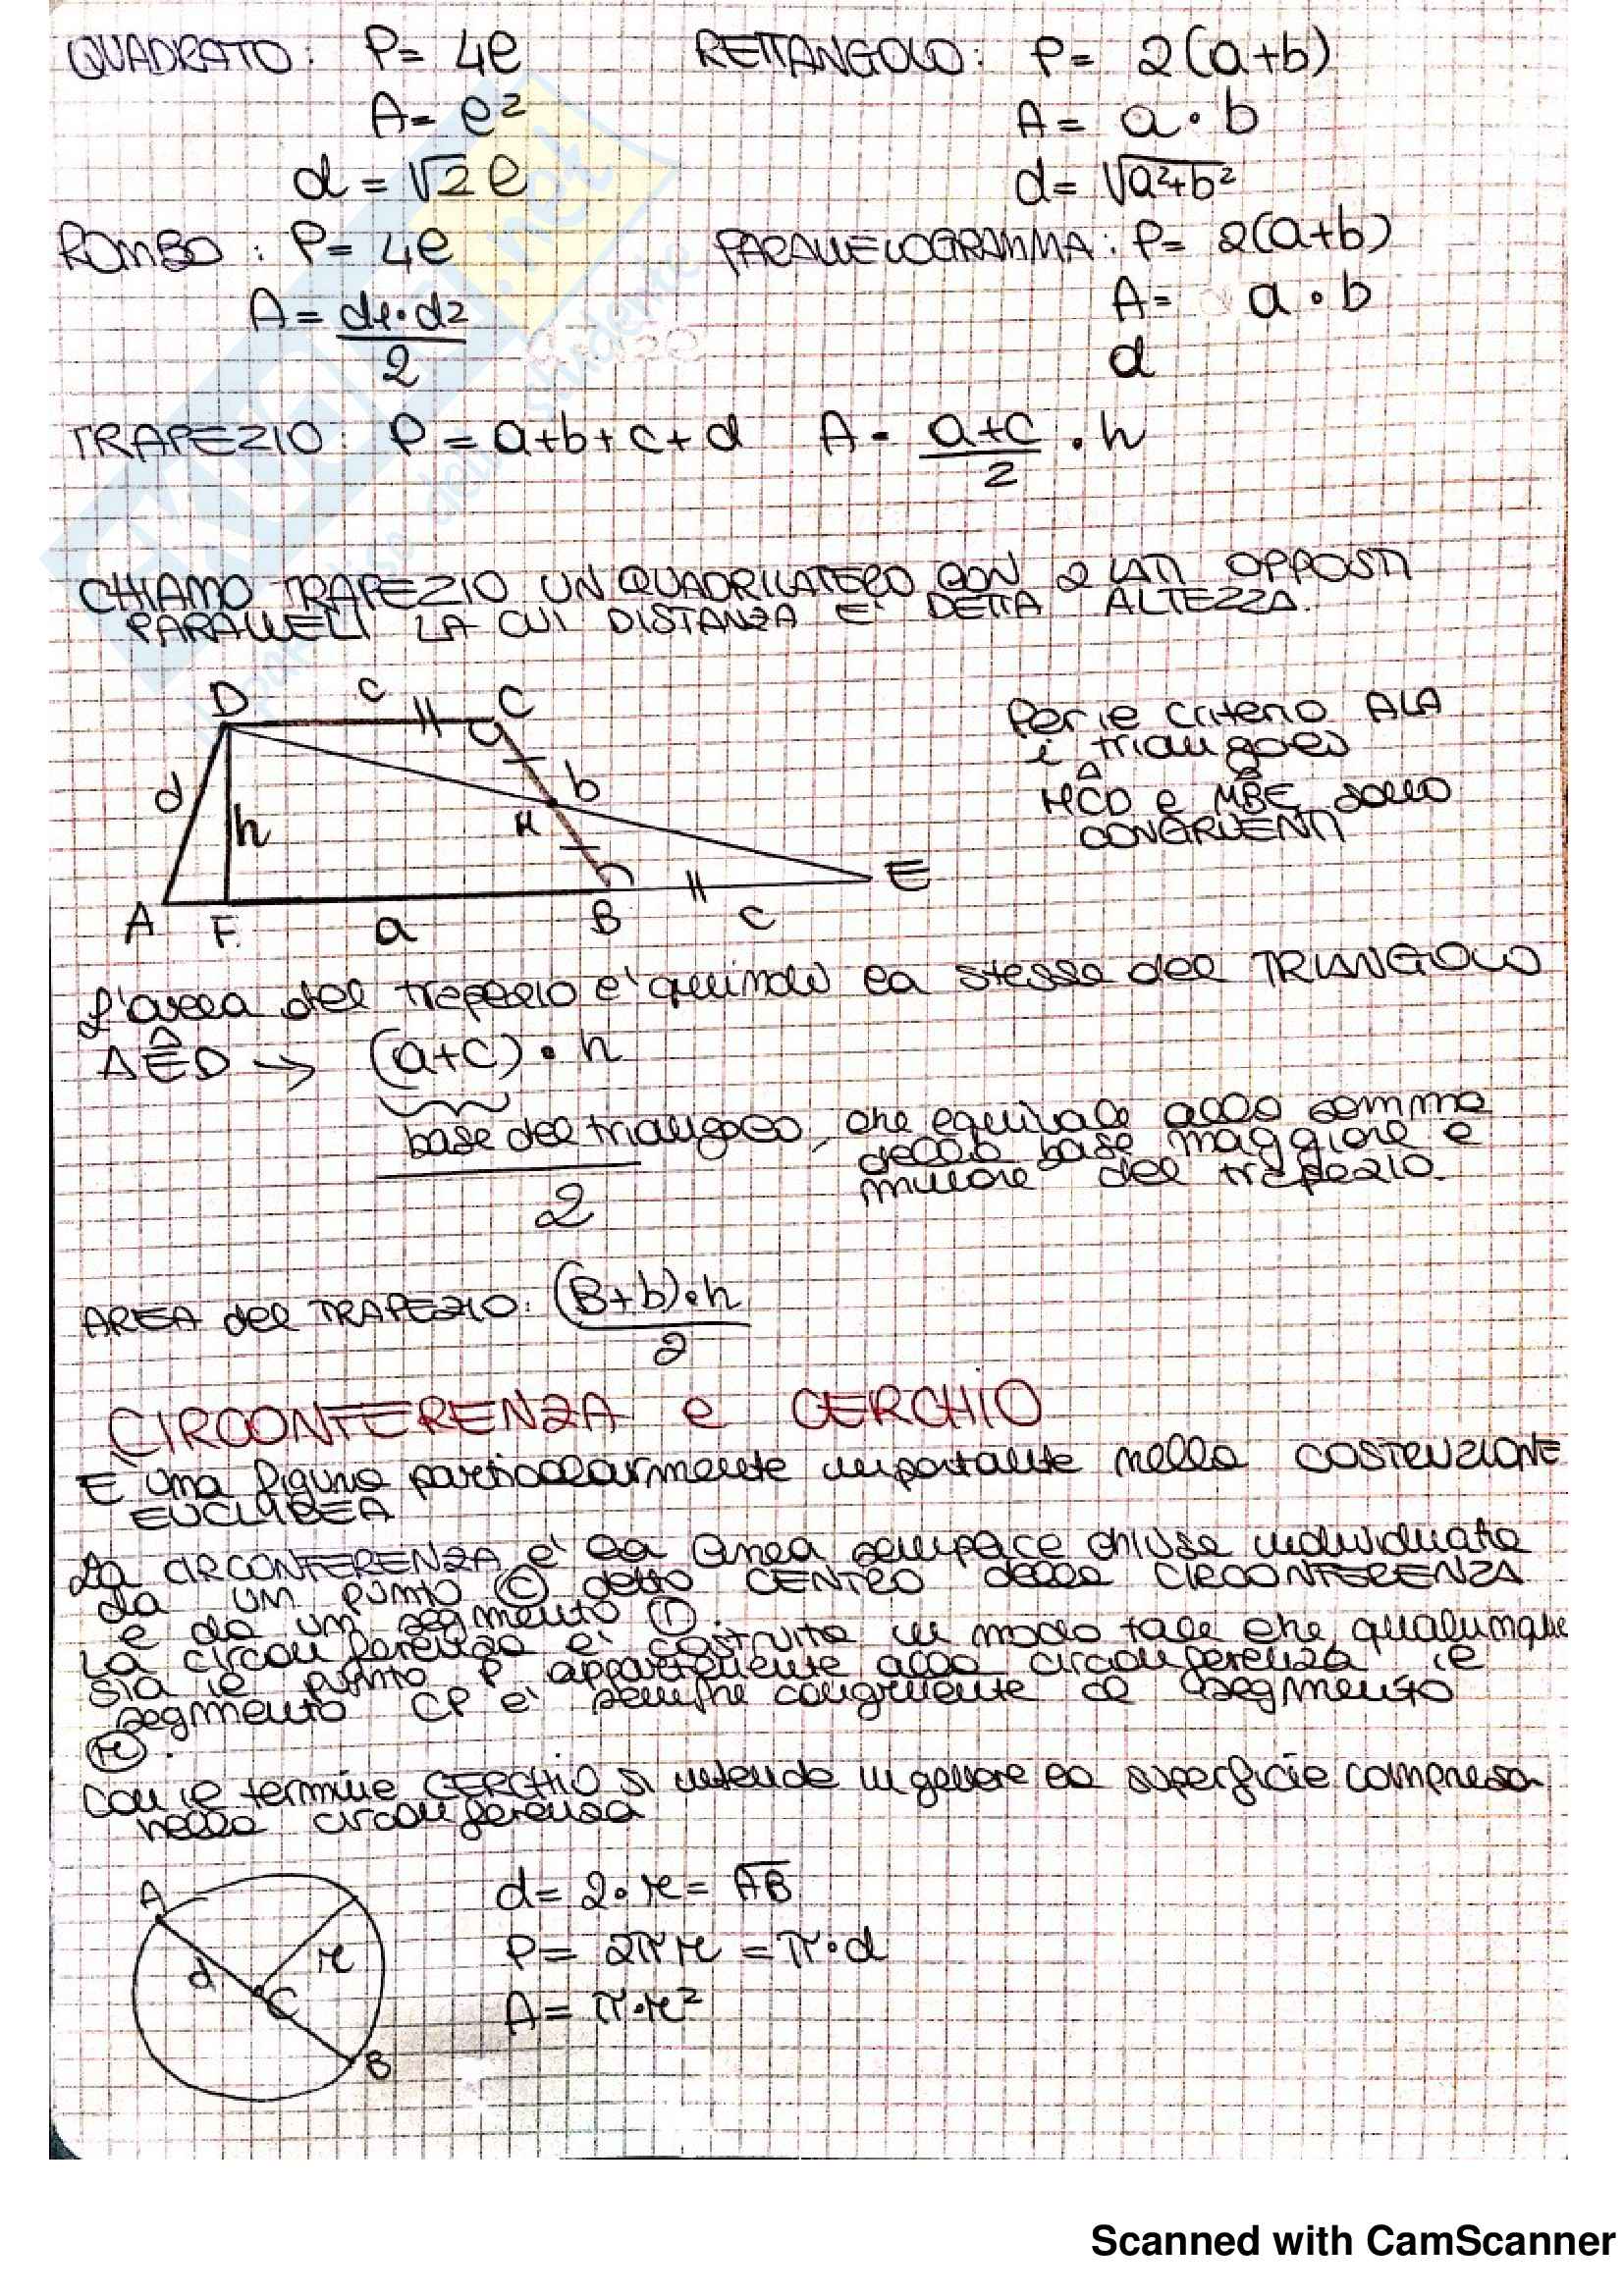 QUADRATO: P= 4l RETTANGOLO: P= 2(a+b)
A= l² A= a·b
d=√2 l d= √a²+b²
ROMBO: P= 4l PARALLELOGRAMMA: P= 2(a+b)
A= d1·d2 / 2 A= a·b
d
TRAPEZIO: P= a+b+c+d A= a+c / 2 ·h
CHIAMO TRAPEZIO UN QUADRILATERO CON 2 LATI OPPOSTI
PARALLELI LA CUI DISTANZA E' DETTA ALTEZZA.
D c C
d h b M
A F a B c E
Per il criterio ALA
i triangoli
MCD e MBE sono
CONGRUENTI
L'area del trapezio e' quindi la stessa del TRIANGOLO
AED → (a+c)·h
base del triangolo, che equivale alla somma
della base maggiore e
minore del trapezio.
2
AREA del TRAPEZIO: (B+b)·h / 2
CIRCONFERENZA e CERCHIO
E una figura particolarmente importante nella COSTRUZIONE
EUCLIDEA
La CIRCONFERENZA e' la linea semplice chiusa individuata
da un punto C detto CENTRO della CIRCONFERENZA
e da un segmento r.
La circonferenza e' costruita in modo tale che, qualunque
sia il punto P appartenente alla circonferenza il
segmento CP e' sempre congruente al segmento
r.
Con il termine CERCHIO si intende in genere la superficie compresa
nella circonferenza
A d C r B
d= 2·r= AB
P= 2πr =π·d
A= π·r²
Scanned with CamScanner